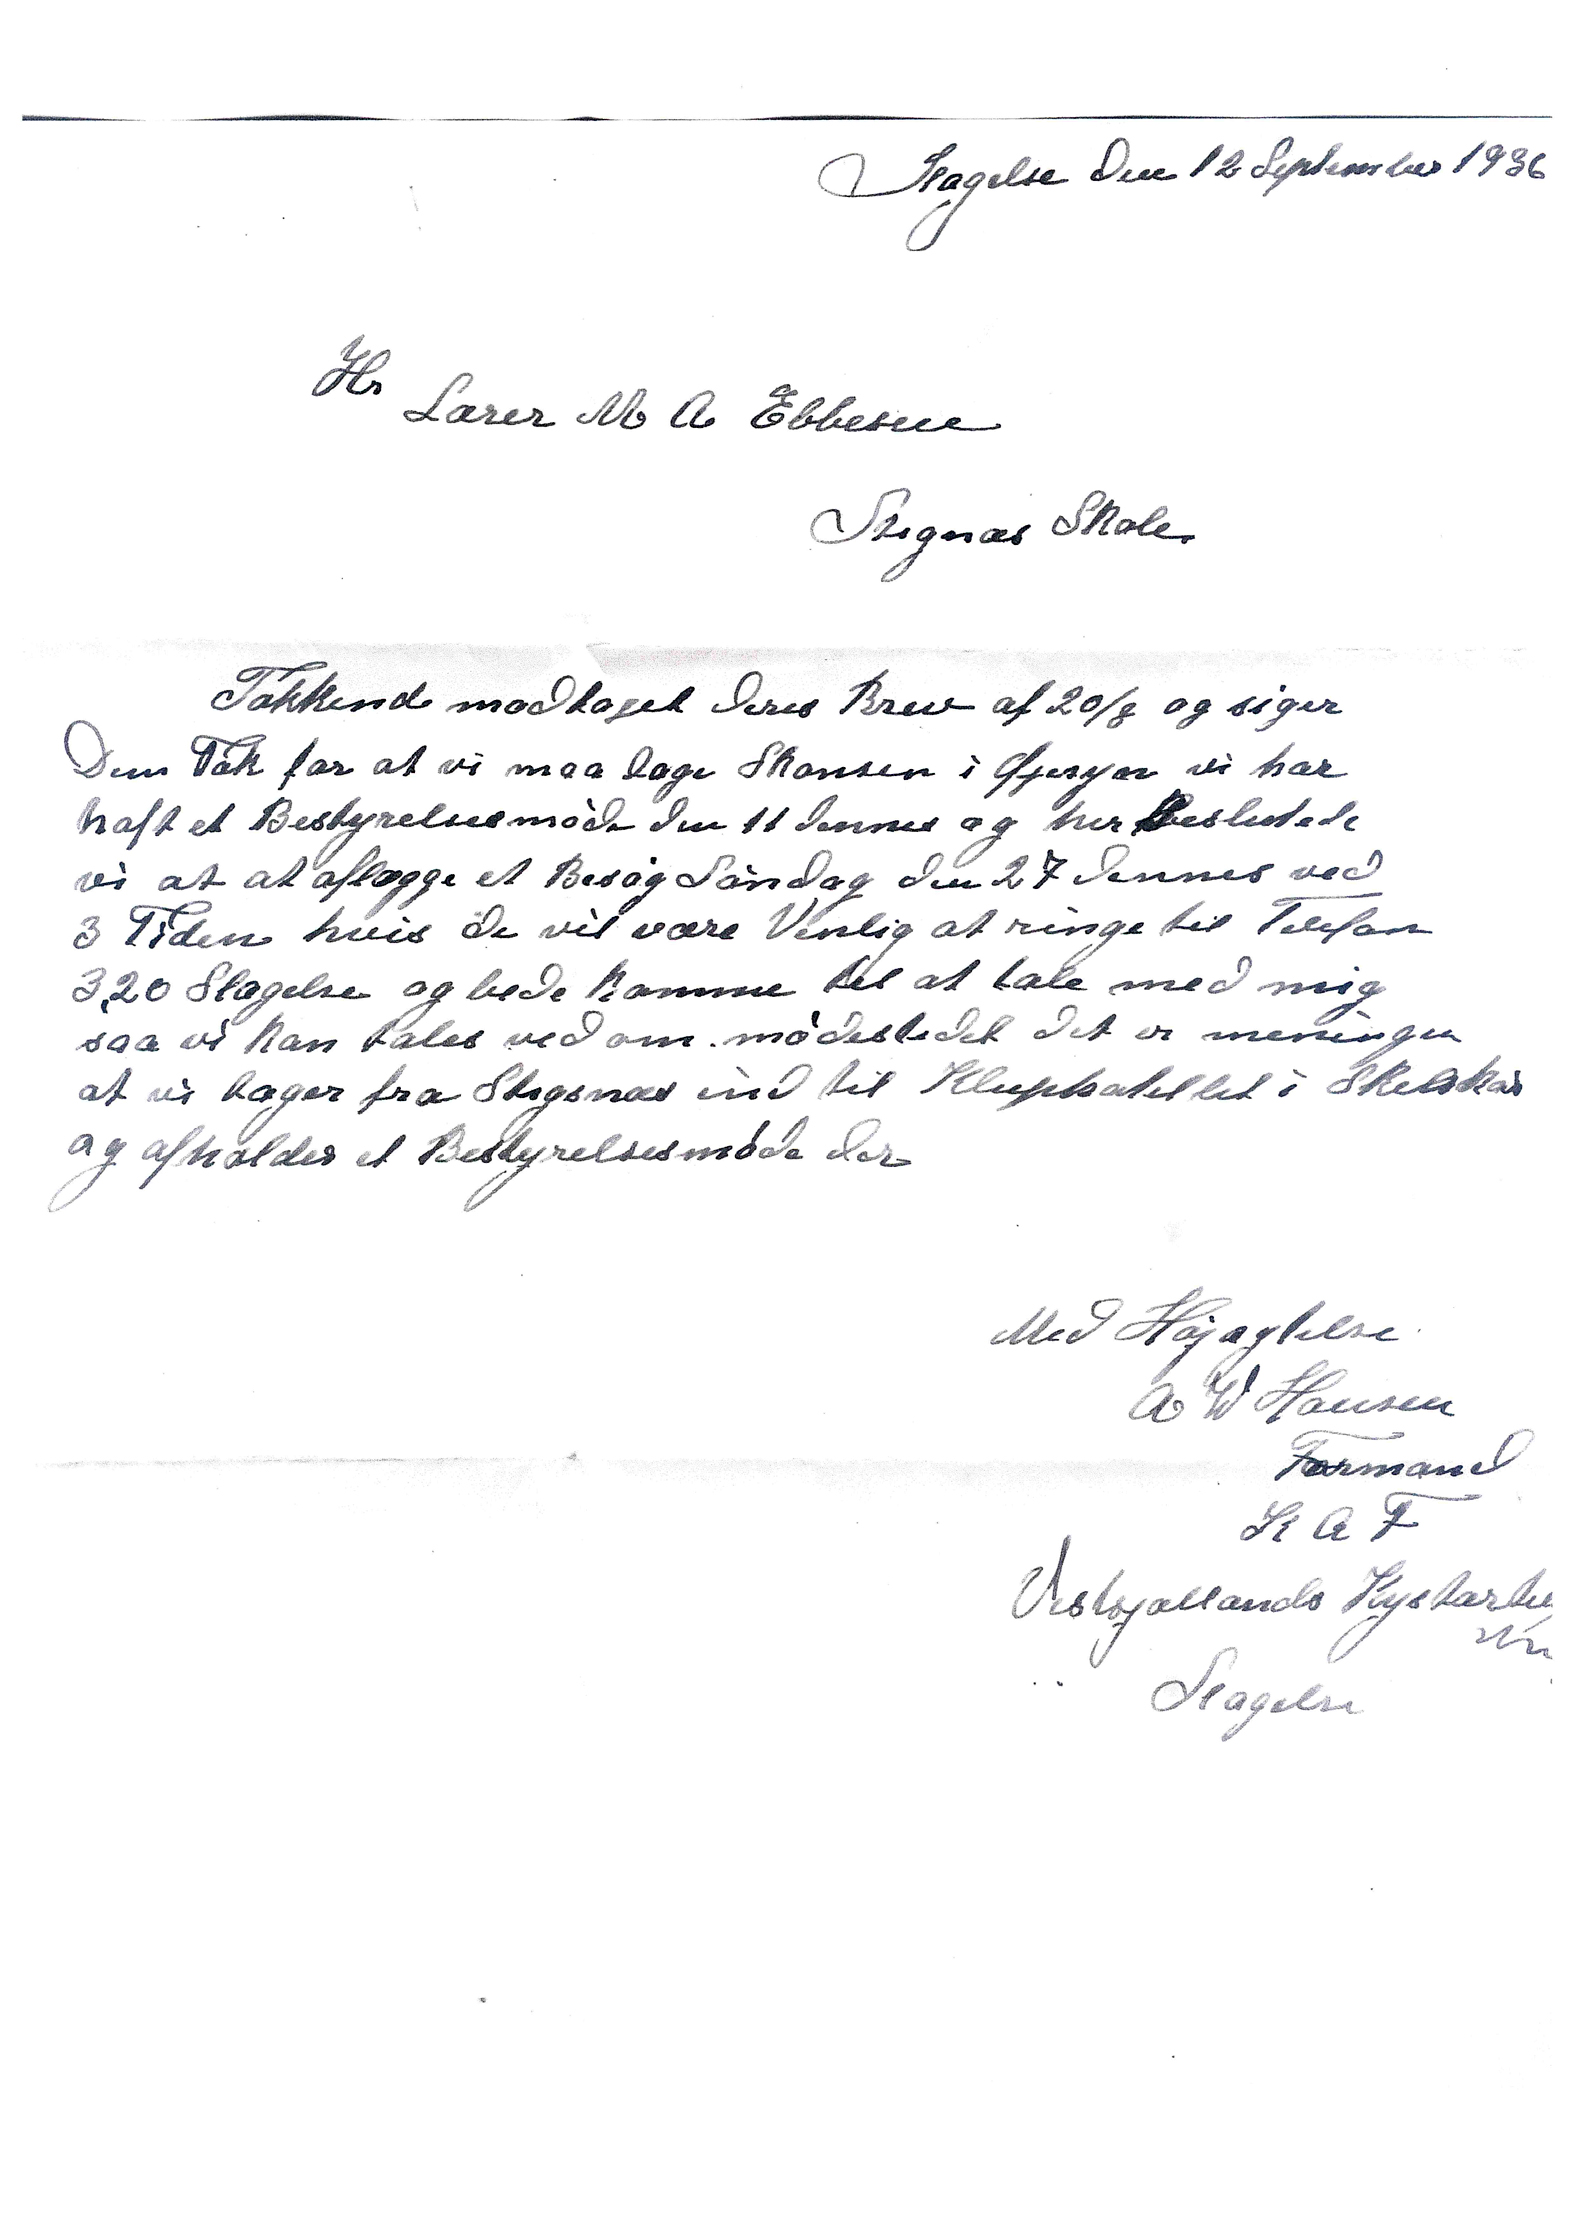 Slagelse den 12 September 1936
Hr
Lærer M A Ebbesen
Stignæs Skole
Takkende modtaget deres Brev af 20/8 og siger
Dem Tak for at vi maa tage Skansen i Øjesyn vi har
haft et Bestyrelsesmøde den 11 dennes og her besluttede
vi at at aflægge et Besøg Søndag den 27 dennes ved
3 Tiden hvis de vil være Venlig at ringe til Telefon
320 Slagelse og bede komme til at tale med mig
saa vi kan tales ved om mødestedet det er meningen
at vi tager fra Stigsnæs ind til Kluphotellet i Skelskør
og afholder et Bestyrelsesmøde der
Med Højagtelse
A W Hansen
Formand
K A F
Vestsjællands Kystarti
Slagelse